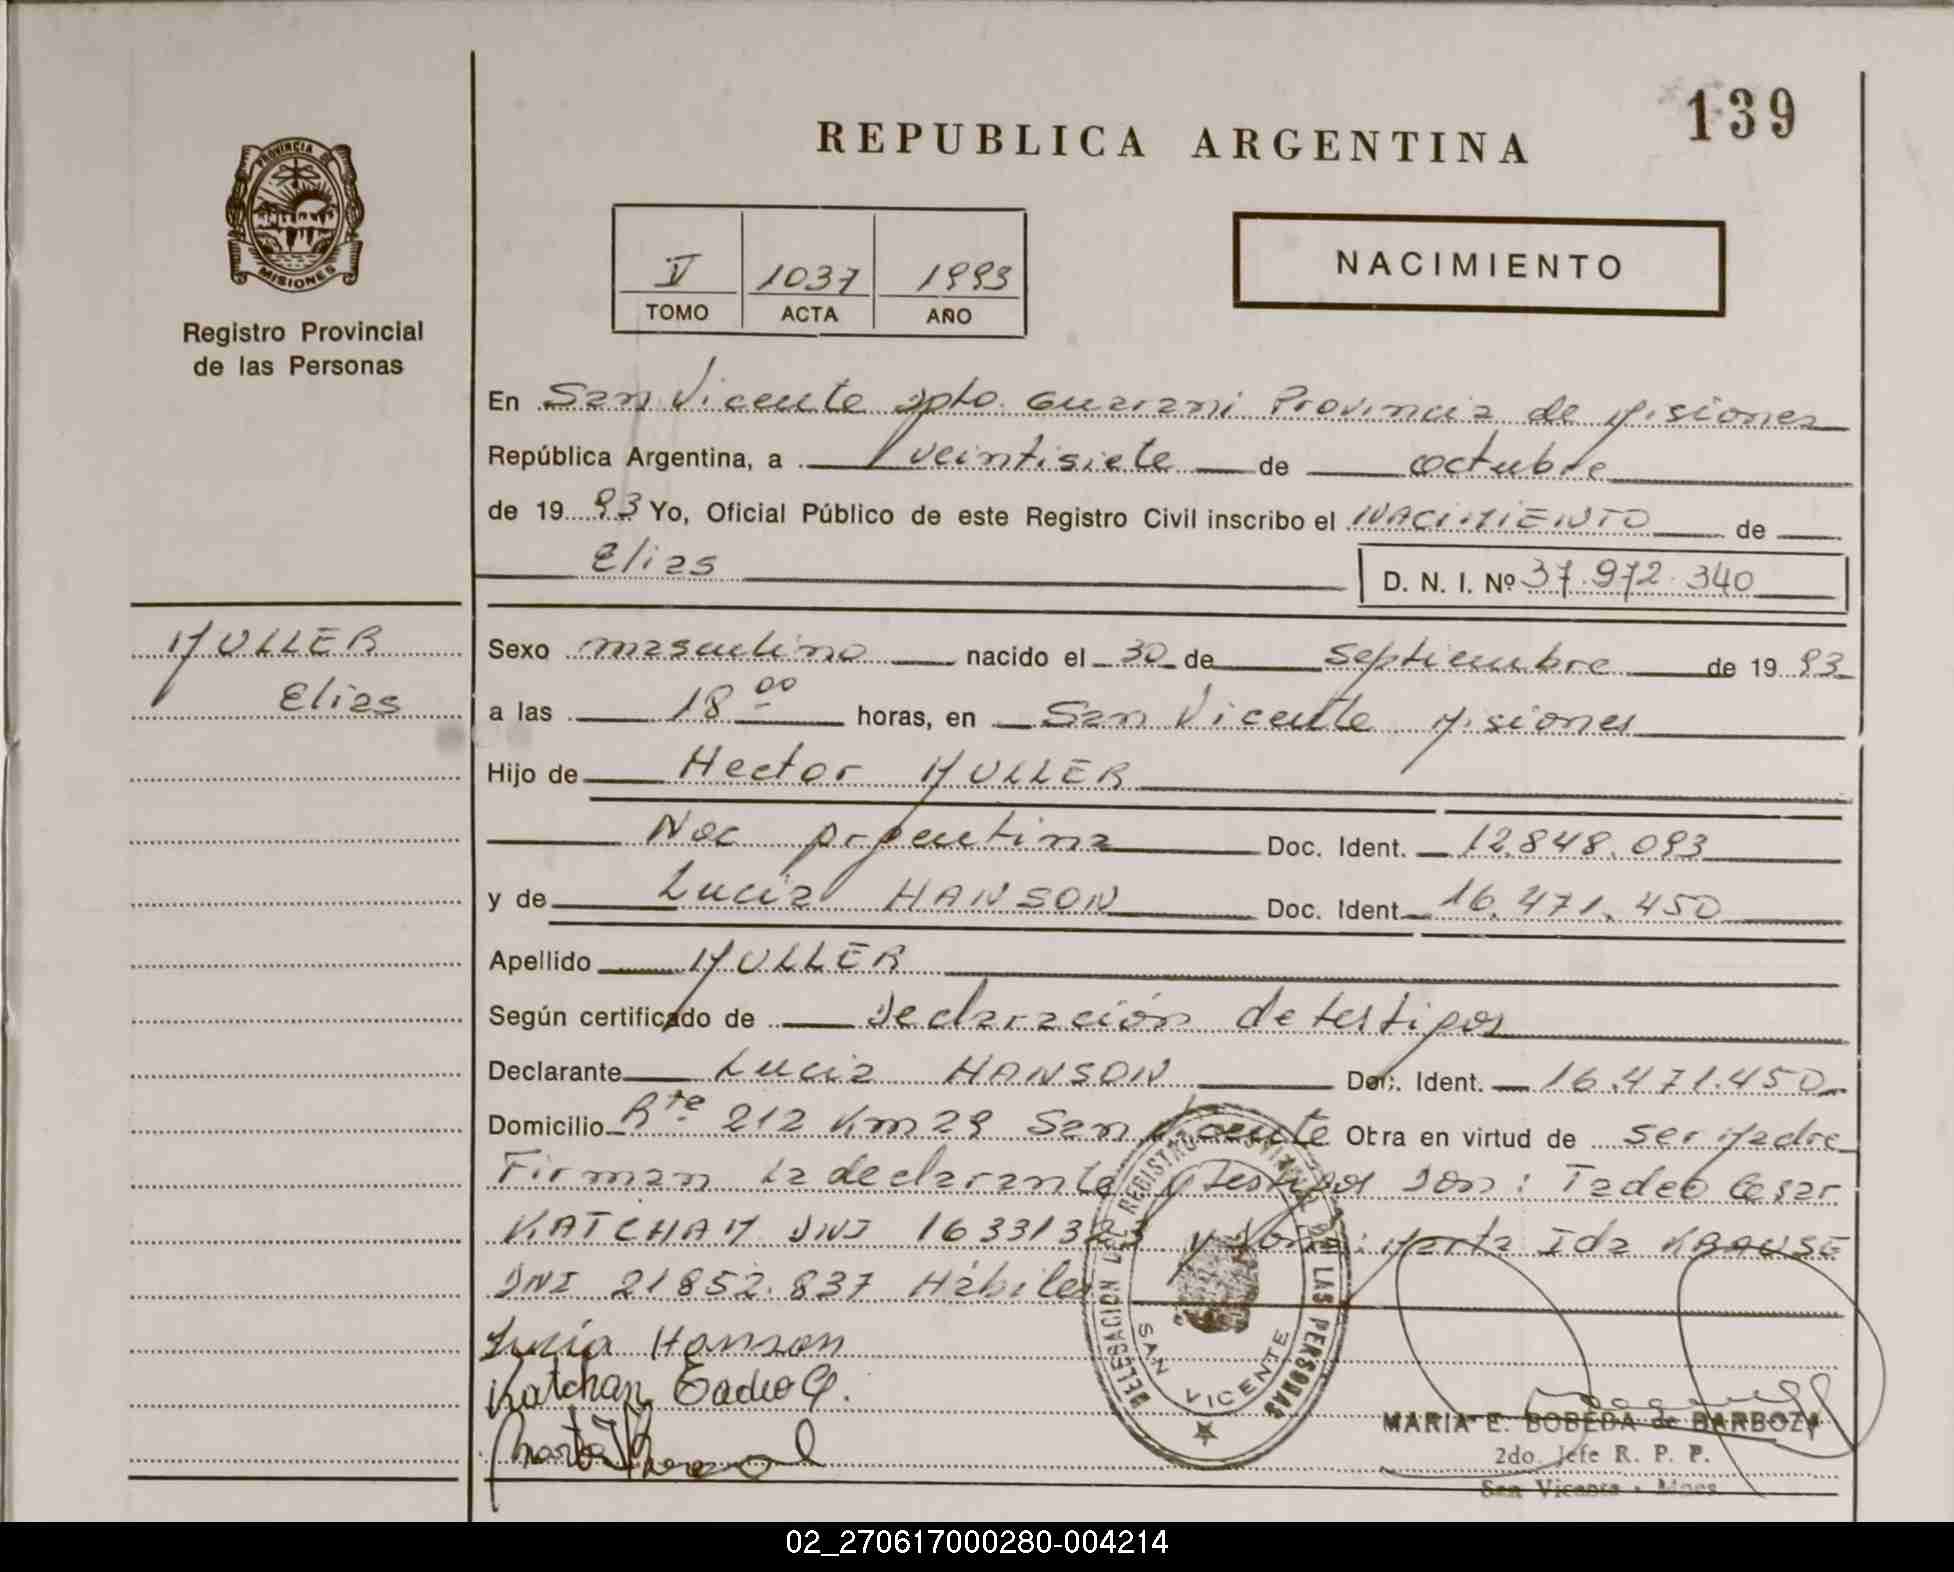 139
REPUBLICA ARGENTINA
PROVINCIA DE
MISIONES
Registro Provincial
de las Personas
V 1037 1993
TOMO ACTA AÑO
NACIMIENTO
En San Vicente Dpto. Guarani Provincia de Misiones
República Argentina, a veintisiete de octubre
de 19 93 Yo, Oficial Público de este Registro Civil inscribo el NACIMIENTO de
Elias
D. N. I. Nº 37.972.340
MULLER
Elias
Sexo masculino nacido el 30 de Septiembre de 19 93
a las 18 00 horas, en San Vicente Misiones
Hijo de Hector MULLER
Nac Argentina Doc. Ident. 12.848.093
y de Lucia HANSON Doc. Ident. 16.471.450
Apellido MULLER
Según certificado de Declaración de testigos
Declarante Lucia HANSON Doc. Ident. 16.471.450
Domicilio Rte 212 Km 29 San Vicente Obra en virtud de ser Madre
Firman la declarante y testigos Don: Tadeo Cesar
KATCHAN DNI 16331323 y Doña: Marta Ida KRAUSE
DNI 21852.837 Hábiles
Lucía Hanson
Katchan Tadeo C.
DELEGACION DEL REGISTRO PROVINCIAL DE LAS PERSONAS
SAN VICENTE
MARIA E. BOBEDA de BARBOZA
2do. Jefe R. P. P.
San Vicente - Mnes.
02_270617000280-004214